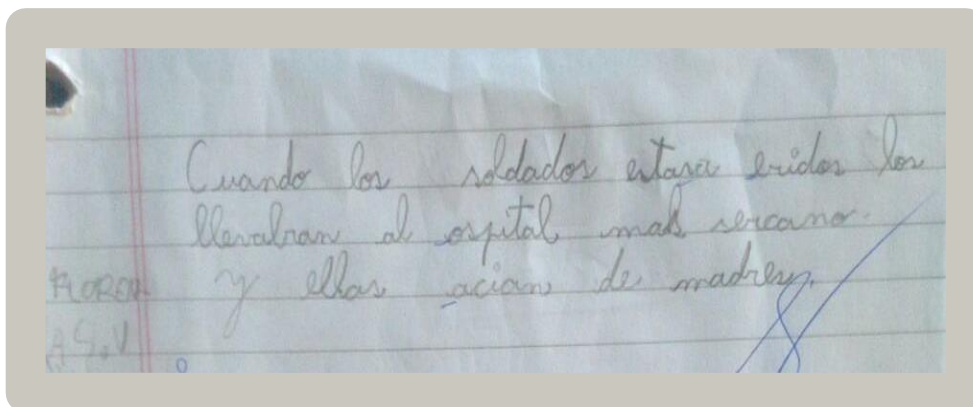 Cuando los soldados estava eridos los
llevabran al ospital mas sercano.
y ellas acian de madres.